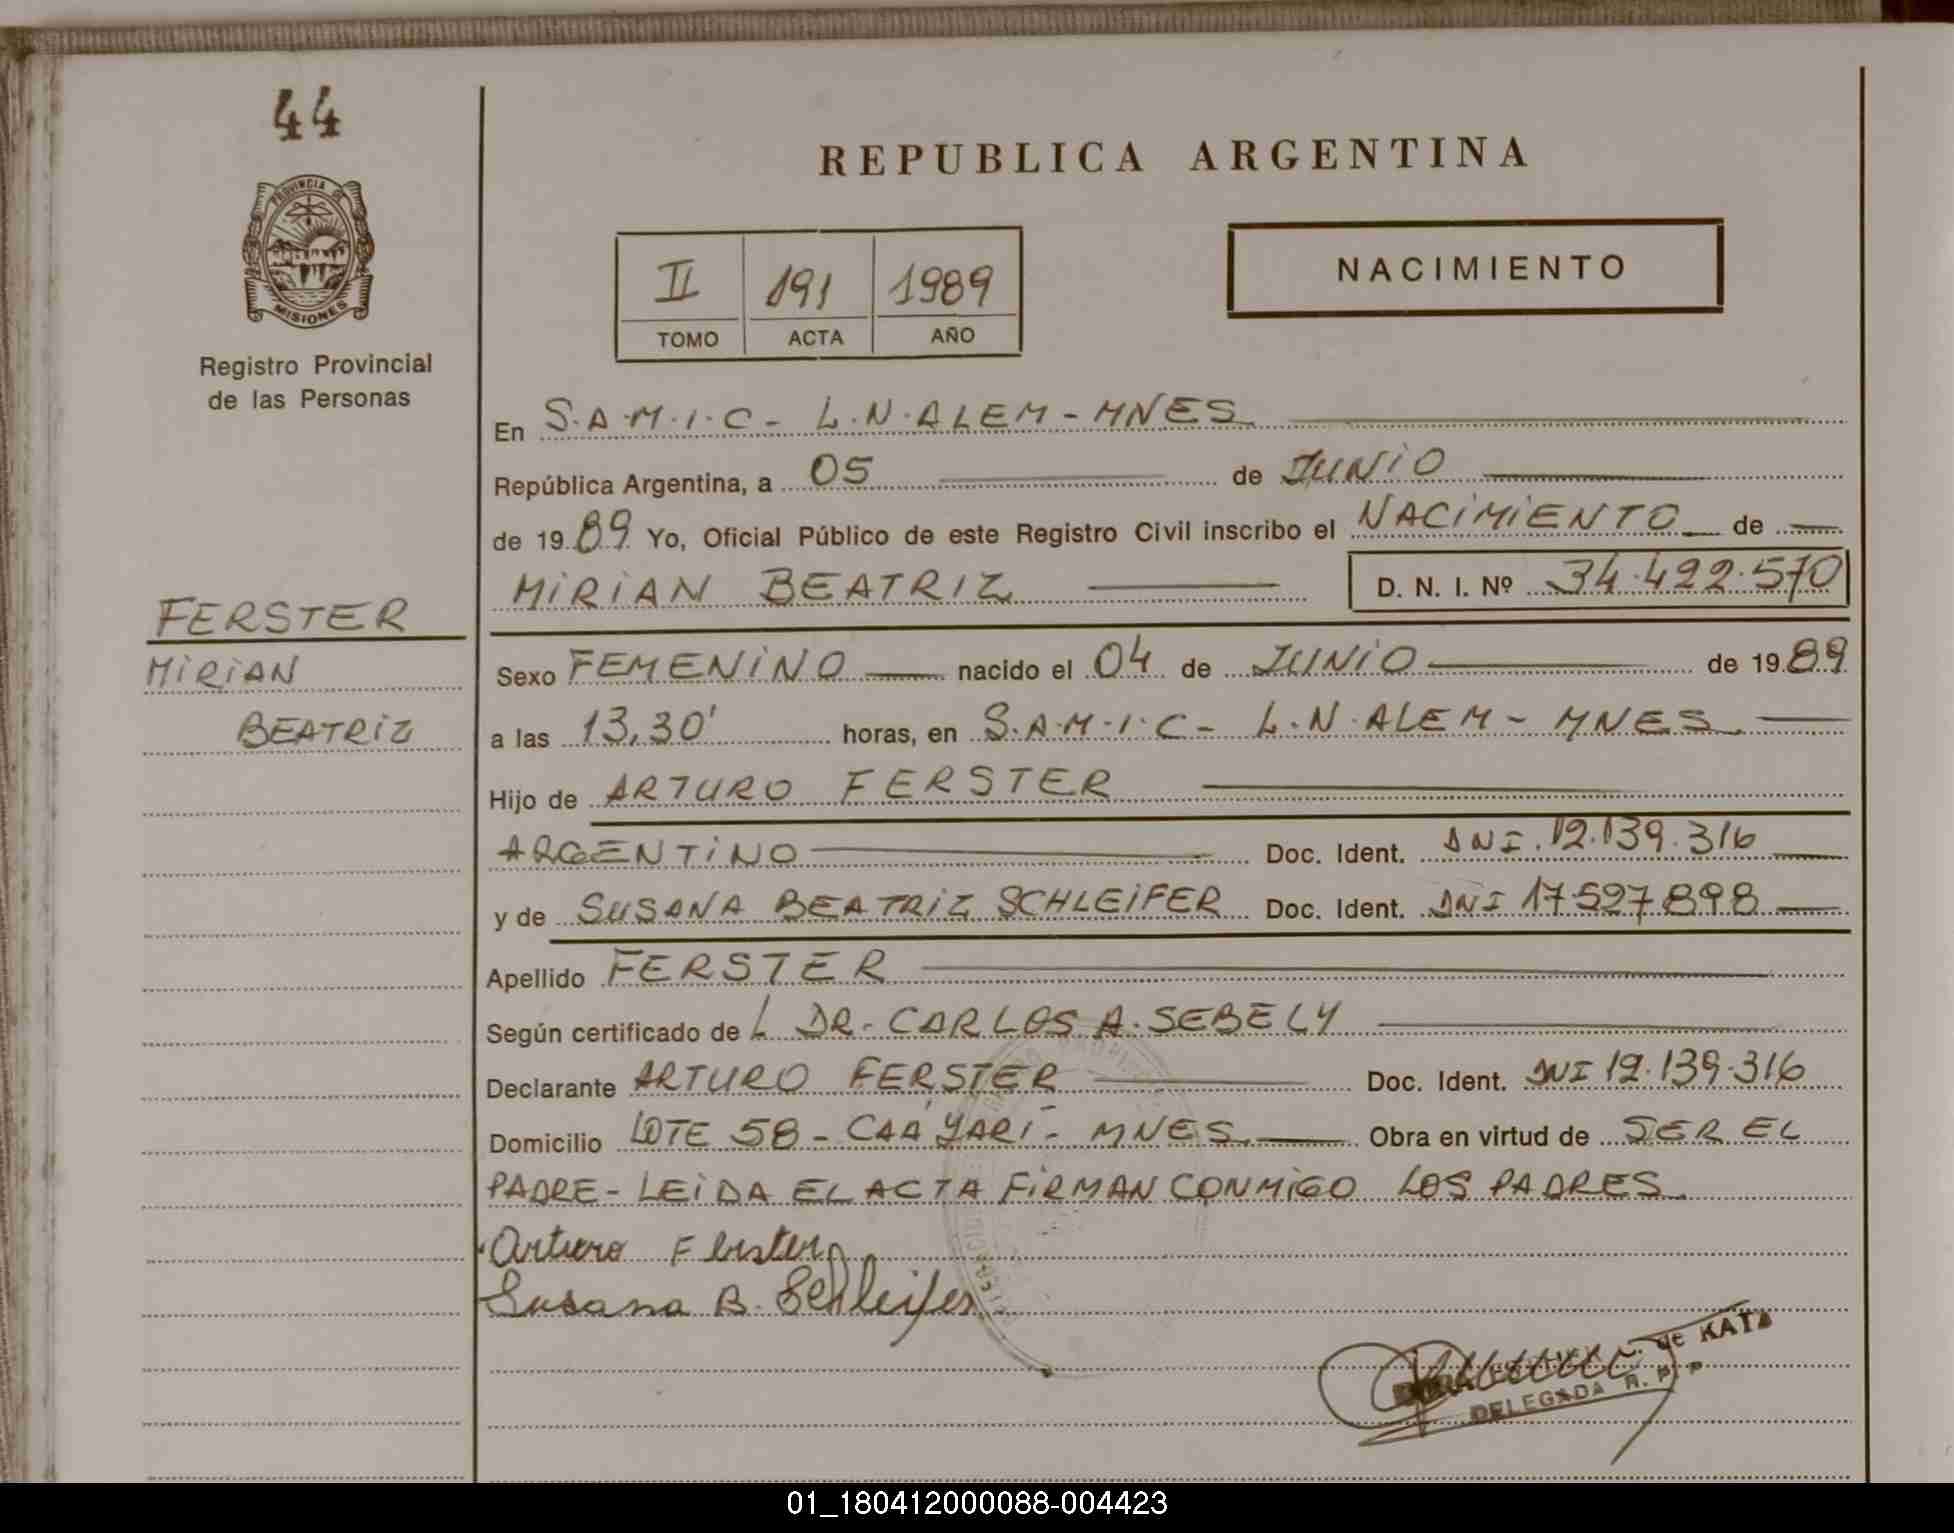 44
PROVINCIA DE
MISIONES
Registro Provincial
de las Personas
FERSTER
MIRIAN
BEATRIZ
REPUBLICA ARGENTINA
II 191 1989
TOMO ACTA AÑO
NACIMIENTO
En S.A.M.I.C - L.N.ALEM - MNES
República Argentina, a 05 de JUNIO
de 1989 Yo, Oficial Público de este Registro Civil inscribo el NACIMIENTO de
MIRIAN BEATRIZ D. N. I. Nº 34.422.570
Sexo FEMENINO nacido el 04 de JUNIO de 1989
a las 13,30' horas, en S.A.M.I.C - L.N.ALEM - MNES
Hijo de ARTURO FERSTER
ARGENTINO Doc. Ident. DNI. 12.139.316
y de SUSANA BEATRIZ SCHLEIFER Doc. Ident. DNI 17527898
Apellido FERSTER
Según certificado de L DR. CARLOS A. SEBELY
Declarante ARTURO FERSTER Doc. Ident. DNI 12.139.316
Domicilio LOTE 58 - CAÁ YARÍ - MNES Obra en virtud de SER EL
PADRE - LEIDA EL ACTA FIRMAN CONMIGO LOS PADRES
Arturo Ferster
Susana B. Schleifer
de KATZ
DELEGADA R. P. P
01_180412000088-004423